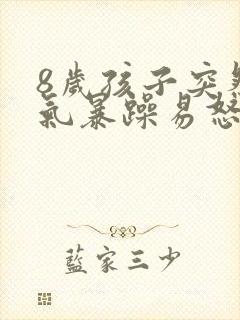 8歲孩子突
氣暴躁易怒
藍家三少